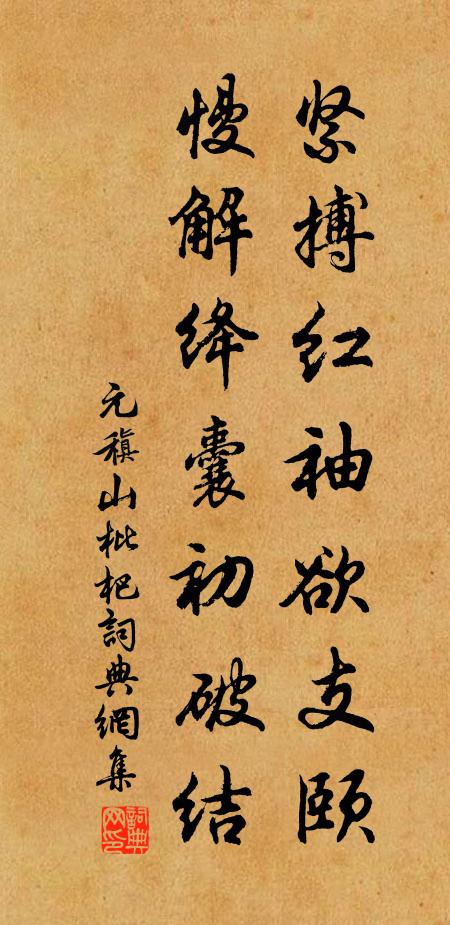 紧搏红袖欲支颐
慢解绛囊初破结
元稹山枇杷詞典網集
詞典网印